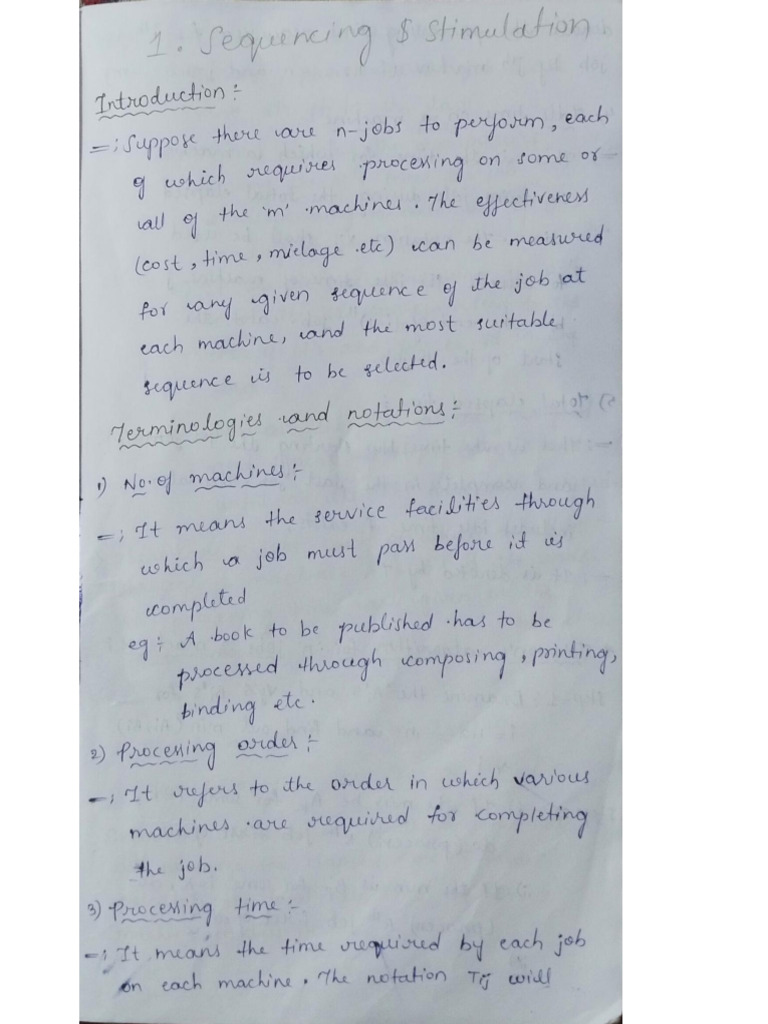 1. Sequencing & Stimulation
Introduction :-
=; Suppose there are n-jobs to perform, each
of which requires processing on some or
all of the 'm' machines. The effectiveness
(cost, time, mielage etc) can be measured
for any given sequence of the job at
each machine, and the most suitable
sequence is to be selected.
Terminologies and notations :-
1) No. of machines :-
=; It means the service facilities through
which a job must pass before it is
completed
eg :- A book to be published has to be
processed through composing, printing,
binding etc.
2) Processing order :-
=; It refers to the order in which various
machines are required for completing
the job.
3) Processing time :-
=; It means the time required by each job
on each machine. The notation Tij will